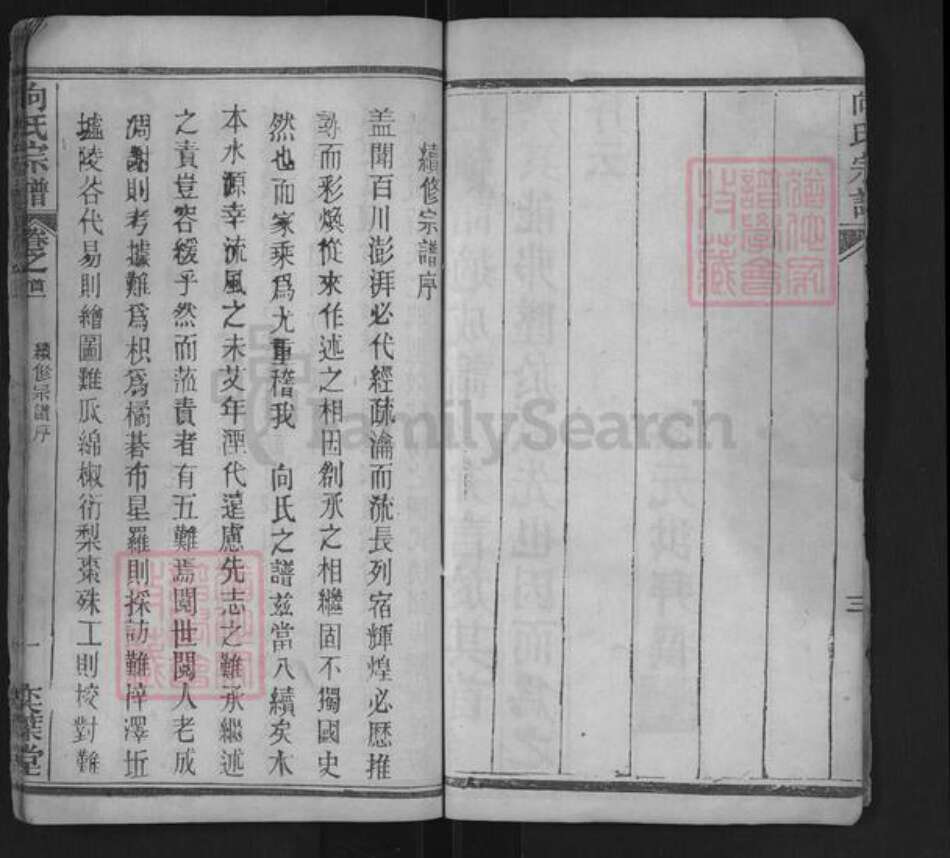 向氏宗譜
三
續修宗譜序
蓋聞百川澎湃必代經疏瀹而流長列宿輝煌必歷推
勘而彩煥從來作述之相因創承之相繼固不獨國史
然也而家乘爲尤重稽我 向氏之譜茲當八續矣木
本水源幸流風之未艾年湮代遠慮先志之難承繼述
之責豈容緩乎然而蒞責者有五難焉閱世閱人老成
凋謝則考據難爲枳爲橘碁布星羅則採訪難梓澤坵
墟陵谷代易則繪圖難瓜綿椒衍梨棗殊工則校對難
向氏宗譜
卷之首
續修宗譜序
一
奕葉堂
FamilySearch